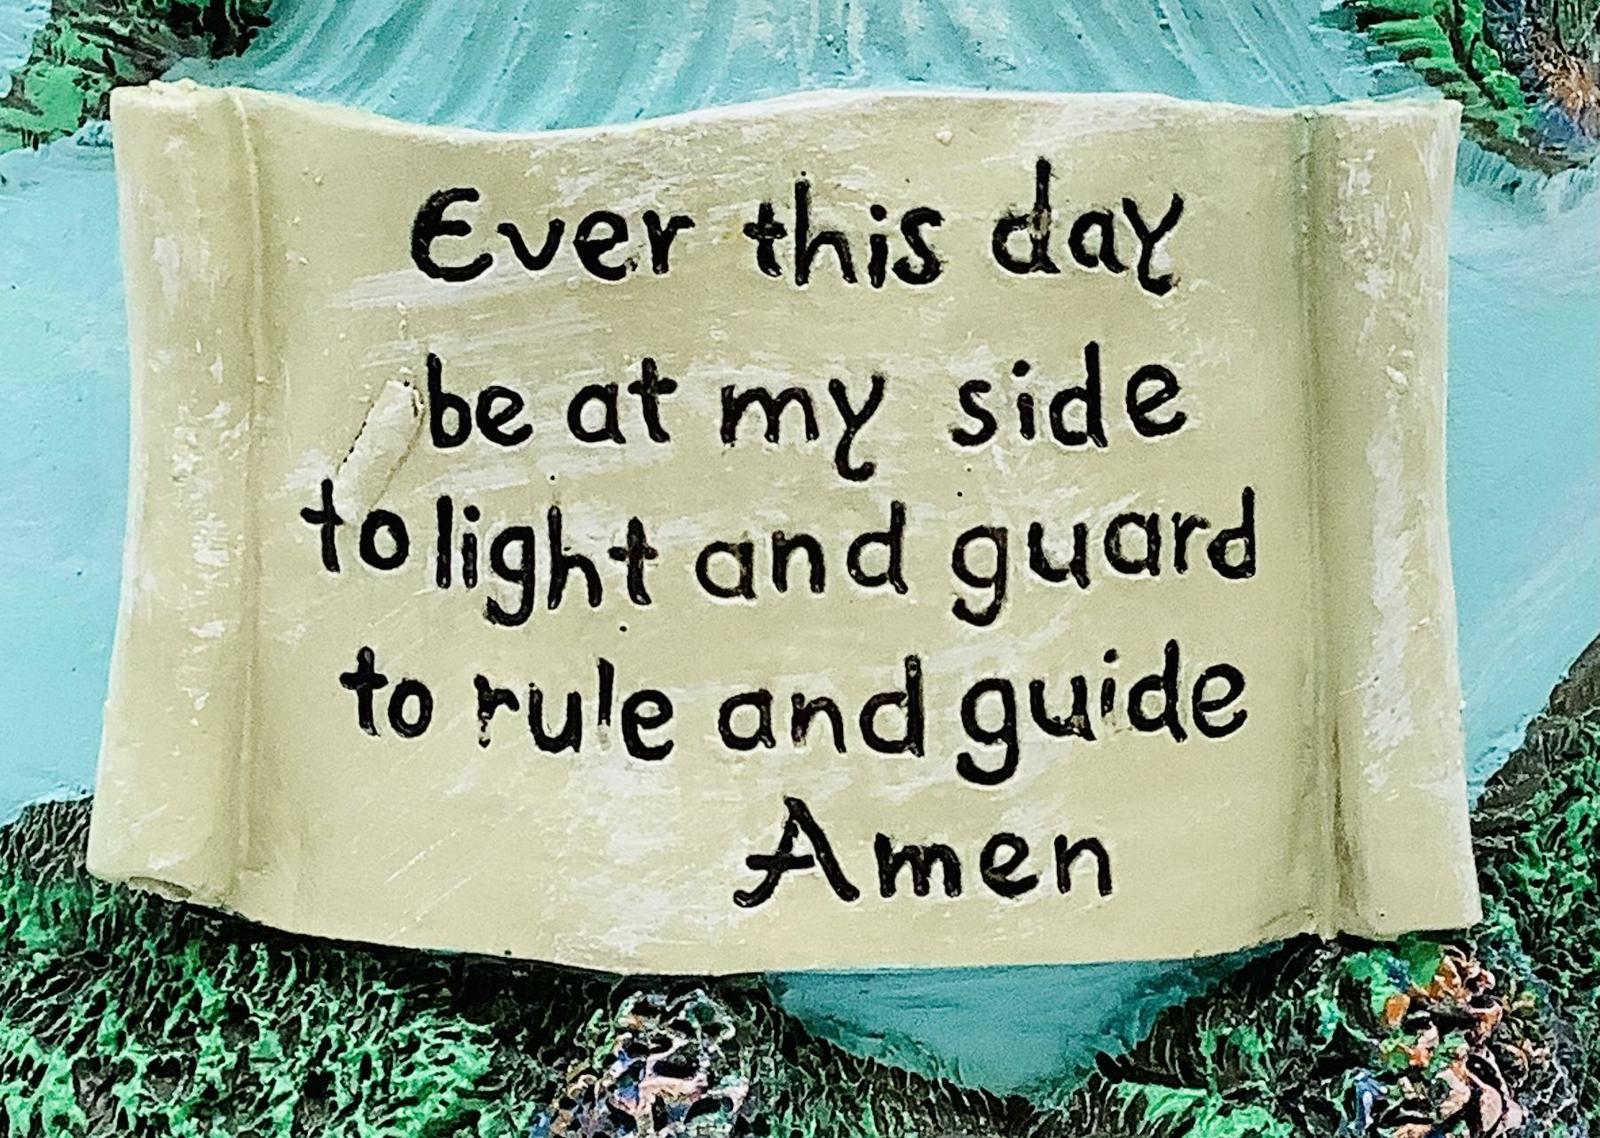 Ever this day
be at my side
to light and guard
to rule and guide
Amen